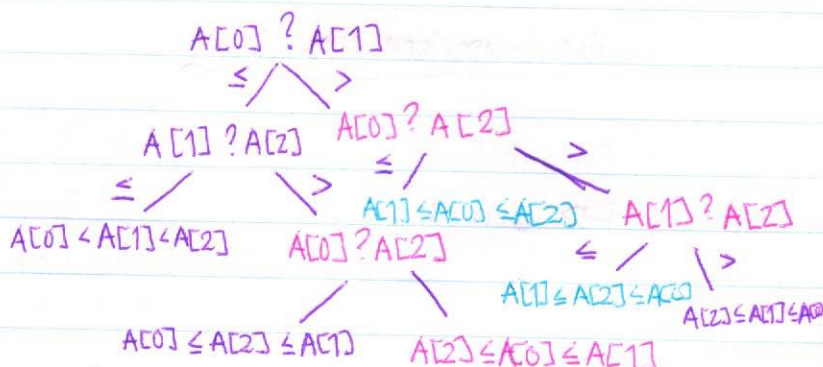 A[0] ? A[1]
≤ >
A[1] ? A[2] A[0] ? A[2]
≤ > ≤ >
A[0] < A[1] < A[2] A[0] ? A[2] A[1] ≤ A[0] ≤ A[2] A[1] ? A[2]
≤ >
A[1] ≤ A[2] ≤ A[0] A[2] ≤ A[1] ≤ A[0]
A[0] ≤ A[2] ≤ A[1] A[2] ≤ A[0] ≤ A[1]